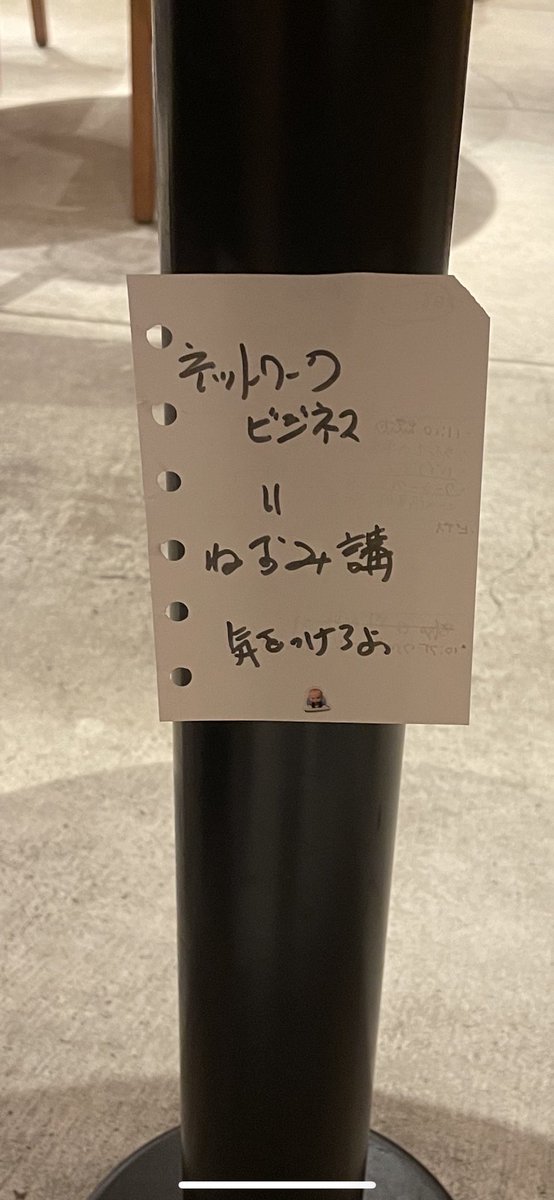 ネットワーク
ビジネス
〃
ねずみ講
気をつけろよ